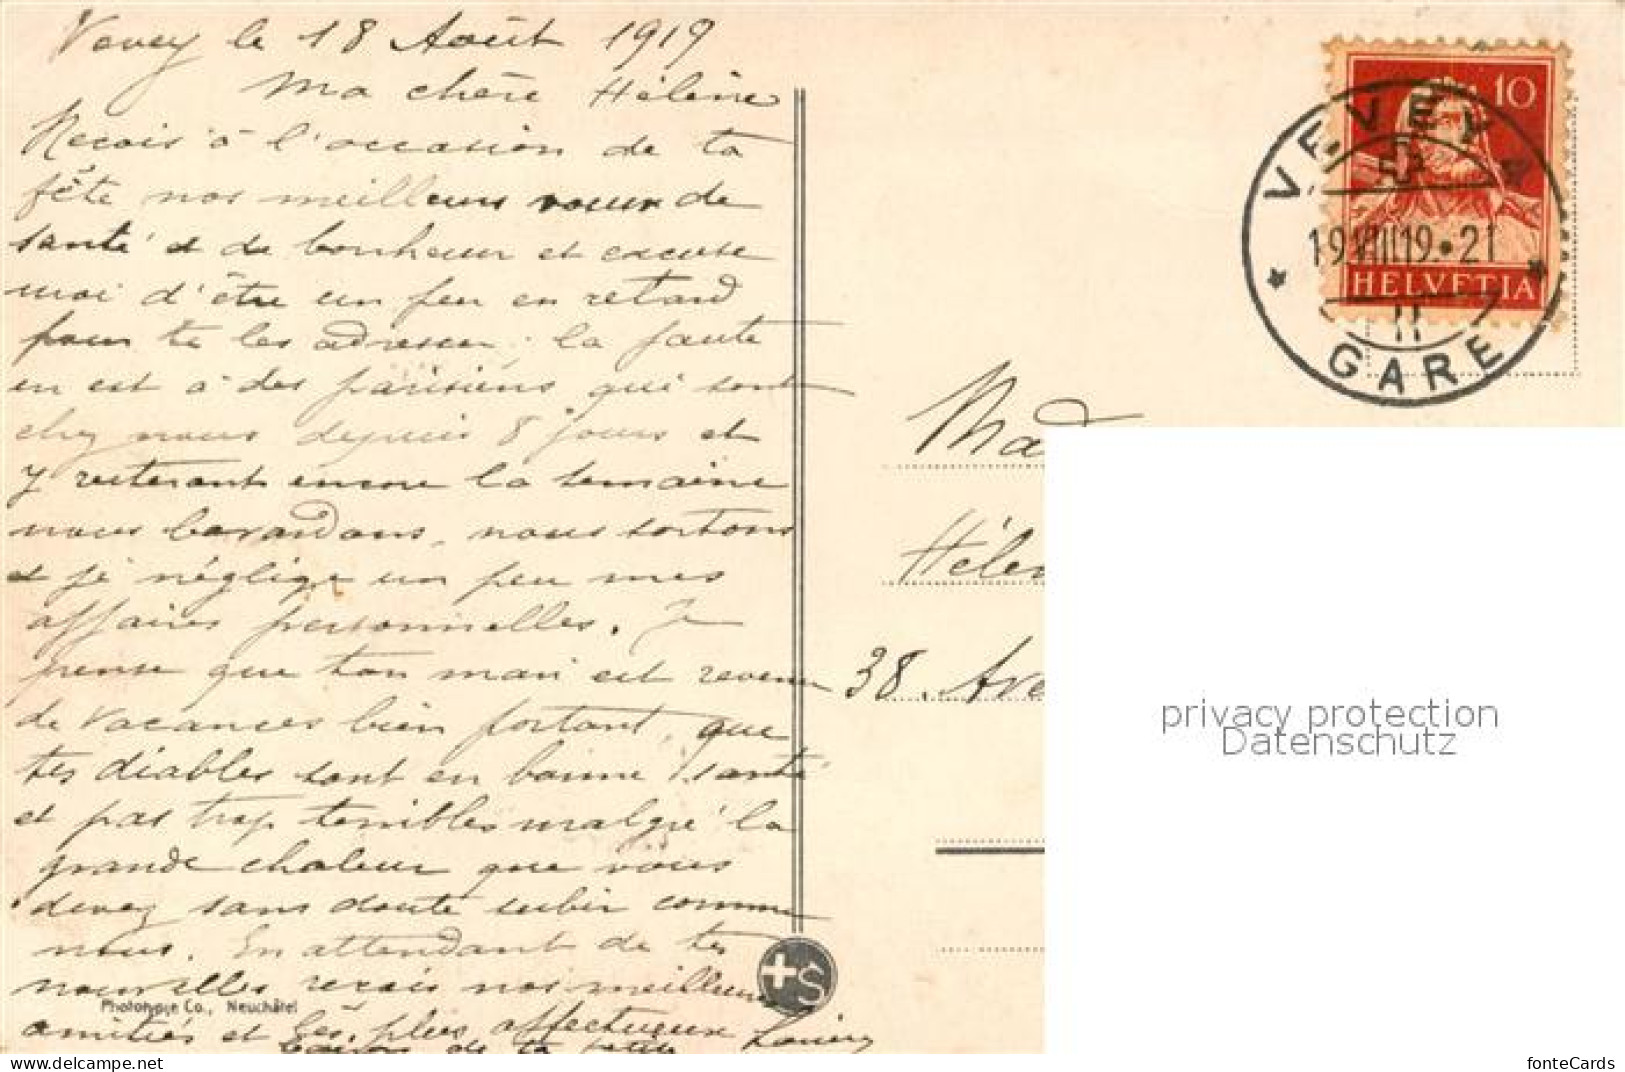 Vevey le 18 Août 1919
Ma chère Hélène
Reçois à l'occasion de ta
fête nos meilleurs voeux de
santé et de bonheur et excuse
moi d'être un peu en retard
pour te les adresser; la faute
en est à des parisiens qui sont
chez nous depuis 8 jours et
y resteront encore la semaine
nous bavardons, nous sortons
et je néglige un peu mes
affaires personnelles. Je
pense que ton mari est revenu
de vacances bien portant, que
tes diables sont en bonne santé
et pas trop terribles malgré la
grande chaleur que vous
devez sans doute subir comme
nous. En attendant de tes
nouvelles reçois nos meilleures
amitiés et les plus affectueux
baisers de ta petite
Phototypie Co., Neuchâtel
+S
10
HELVETIA
VEVEY
19.VIII.19•21
II
GARE
Mad
Hélen
38. Ave
privacy protection
Datenschutz
fonteCards